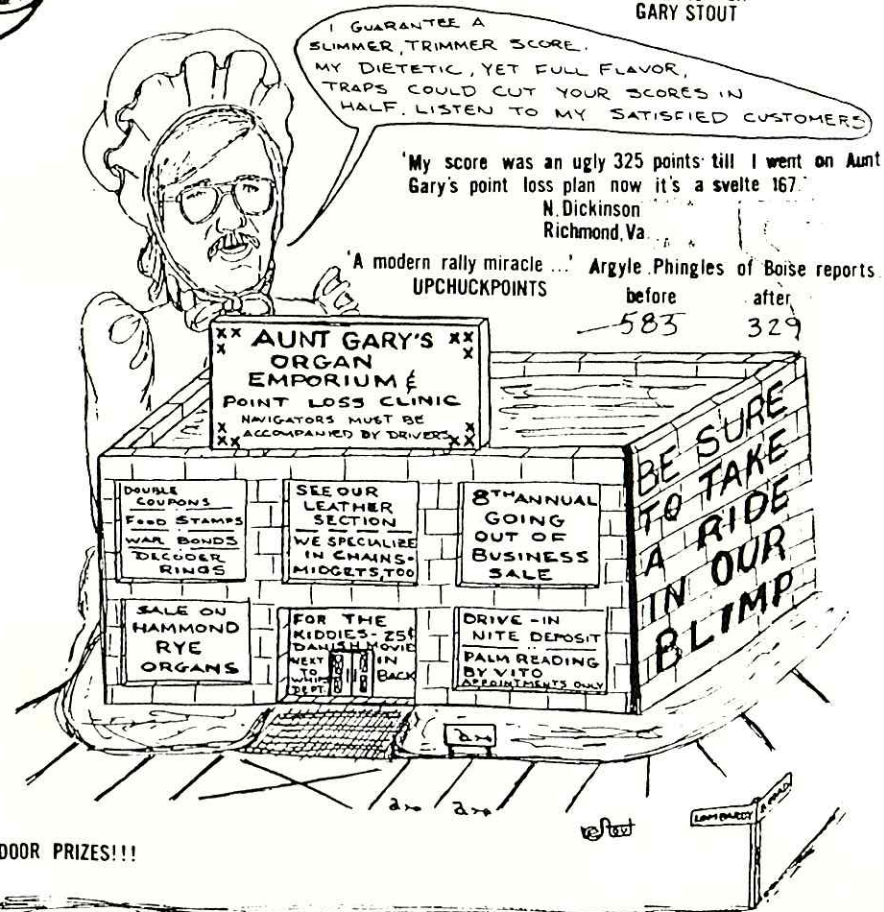 GARY STOUT
I GUARANTEE A
SLIMMER, TRIMMER SCORE.
MY DIETETIC, YET FULL FLAVOR,
TRAPS COULD CUT YOUR SCORES IN
HALF. LISTEN TO MY SATISFIED CUSTOMERS
'My score was an ugly 325 points till I went on Aunt
Gary's point loss plan now it's a svelte 167.'
N. Dickinson
Richmond, Va.
'A modern rally miracle ...' Argyle Phingles of Boise reports
UPCHUCKPOINTS
before after
583 329
XX AUNT GARY'S XX
X ORGAN X
EMPORIUM &
POINT LOSS CLINIC
X NAVIGATORS MUST BE X
XX ACCOMPANIED BY DRIVERS XX
DOUBLE
COUPONS
FOOD STAMPS
WAR BONDS
DECODER
RINGS
SEE OUR
LEATHER
SECTION
WE SPECIALIZE
IN CHAINS-
MIDGETS, TOO
8TH ANNUAL
GOING
OUT OF
BUSINESS
SALE
BE SURE
TO TAKE
A RIDE
IN OUR
BLIMP
SALE ON
HAMMOND
RYE
ORGANS
FOR THE
KIDDIES - 25¢
DANISH MOVIE
NEXT IN
TO BACK
WHIPS
DEPT.
DRIVE-IN
NITE DEPOSIT
PALM READING
BY VITO
APPOINTMENTS ONLY
Stout
LOMBARDY
DOOR PRIZES!!!